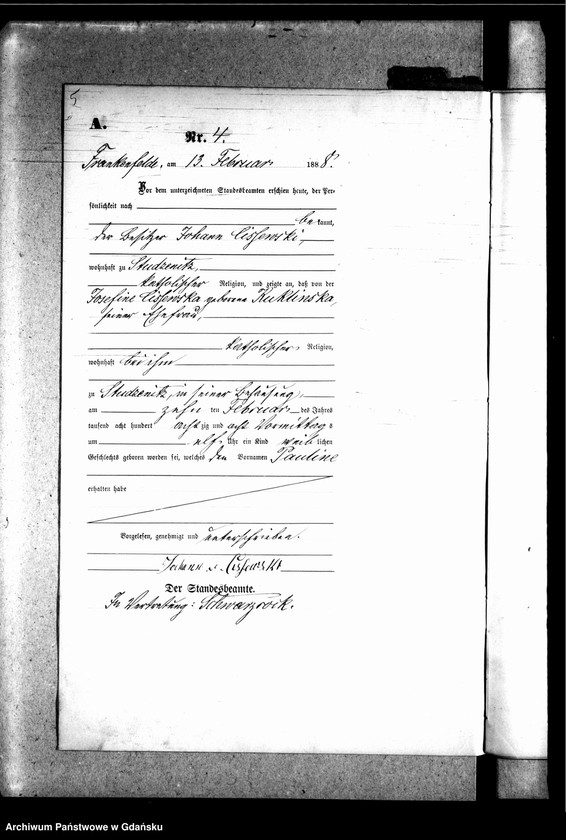 5
A.
Nr. 4.
Frankenfelde, am 13. Februar 1888.
Vor dem unterzeichneten Standesbeamten erschien heute, der Per-
sönlichkeit nach
bekannt,
der Besitzer Johann Cissewski,
wohnhaft zu Studzenitz,
katholischer Religion, und zeigte an, daß von der
Josefine Cissewska geborene Kuklinska,
seiner Ehefrau,
katholischer Religion,
wohnhaft bei ihm
zu Studzenitz, in seiner Behausung,
am zehn ten Februar des Jahres
tausend acht hundert acht zig und acht Vormittags
um elf Uhr ein Kind weib lichen
Geschlechts geboren worden sei, welches den Vornamen Pauline
erhalten habe
Vorgelesen, genehmigt und unterschrieben.
Johann Cissewski
Der Standesbeamte.
In Vertretung: Schwarzrock.
Archiwum Państwowe w Gdańsku